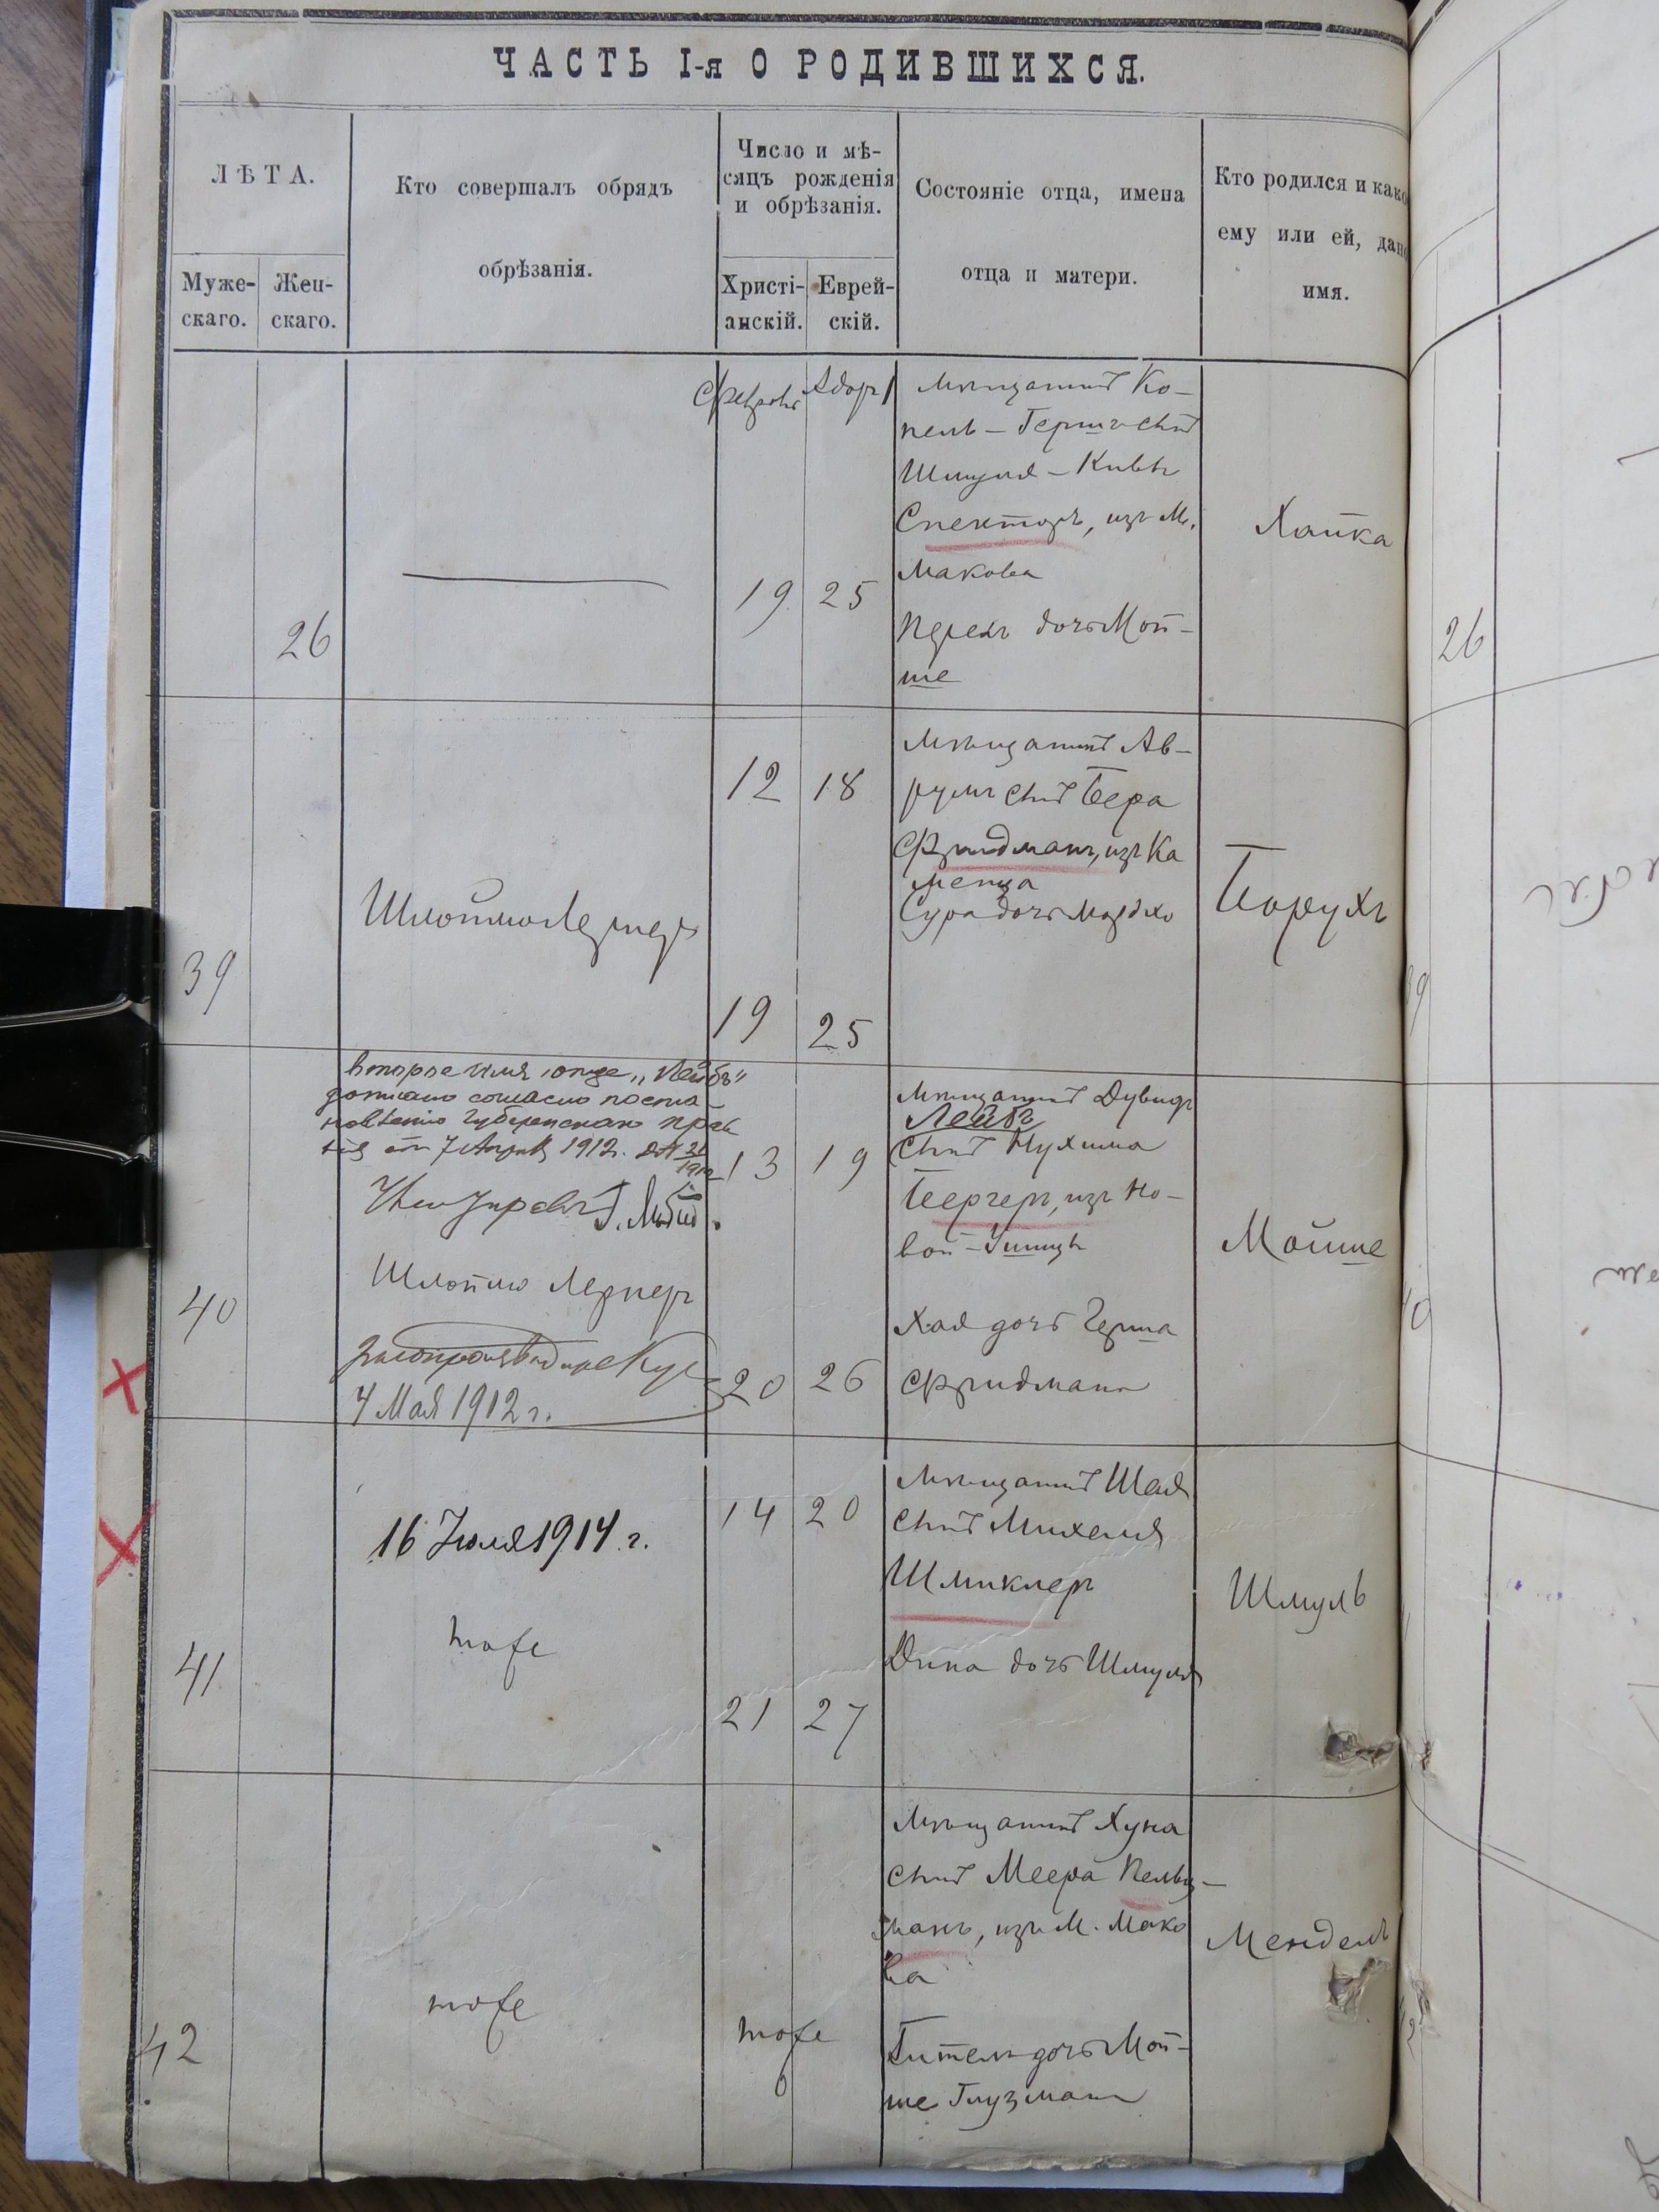 ЧАСТЬ I-я О РОДИВШИХСЯ.
ЛѢТА.
Муже-
скаго.
Жен-
скаго.
Кто совершалъ обрядъ
обрѣзанія.
Число и мѣ-
сяцъ рожденія
и обрѣзанія.
Христі-
анскій.
Еврей-
скій.
Состояніе отца, имена
отца и матери.
Кто родился и како
ему или ей, дано
имя.
26
Февраль
Адаръ
19
25
Мѣщанинъ Ко-
пель-Гершъ сынъ
Шмуля-Кивы
Спекторъ, изъ М.
Макова
дочь Мой-
ше
Хайка
26
39
Шлоймо Лернеръ
12
18
19
25
Мѣщанинъ Ав-
румъ сынъ Бера
Фридманъ, изъ Ка
менца
Сура дочь Мордхо
Борухъ
39
40
второе имя отца „Лейбъ“
дописано согласно поста-
новленію Губернскаго Прав
7 Апрѣля 1912 г.
Шлоймо Лернеръ
4 Мая 1912 г.
13
19
20
26
Мѣщанинъ Дувидъ
Лейбъ
сынъ Нухима
Бергеръ, изъ Но-
вой-Ушицы
Хая дочь Герша
Фридмана
Мойше
40
41
16 Іюля 1914 г.
тоже
14
20
21
27
Мѣщанинъ Шая
сынъ Михеля
Шмиклеръ
Дина дочь Шмуля
Шмуль
42
тоже
тоже
Мѣщанинъ Хуна
сынъ Меера Пельц-
манъ, изъ М. Мако
ва
Гитель дочь Мой-
ше Глузмана
Мендель